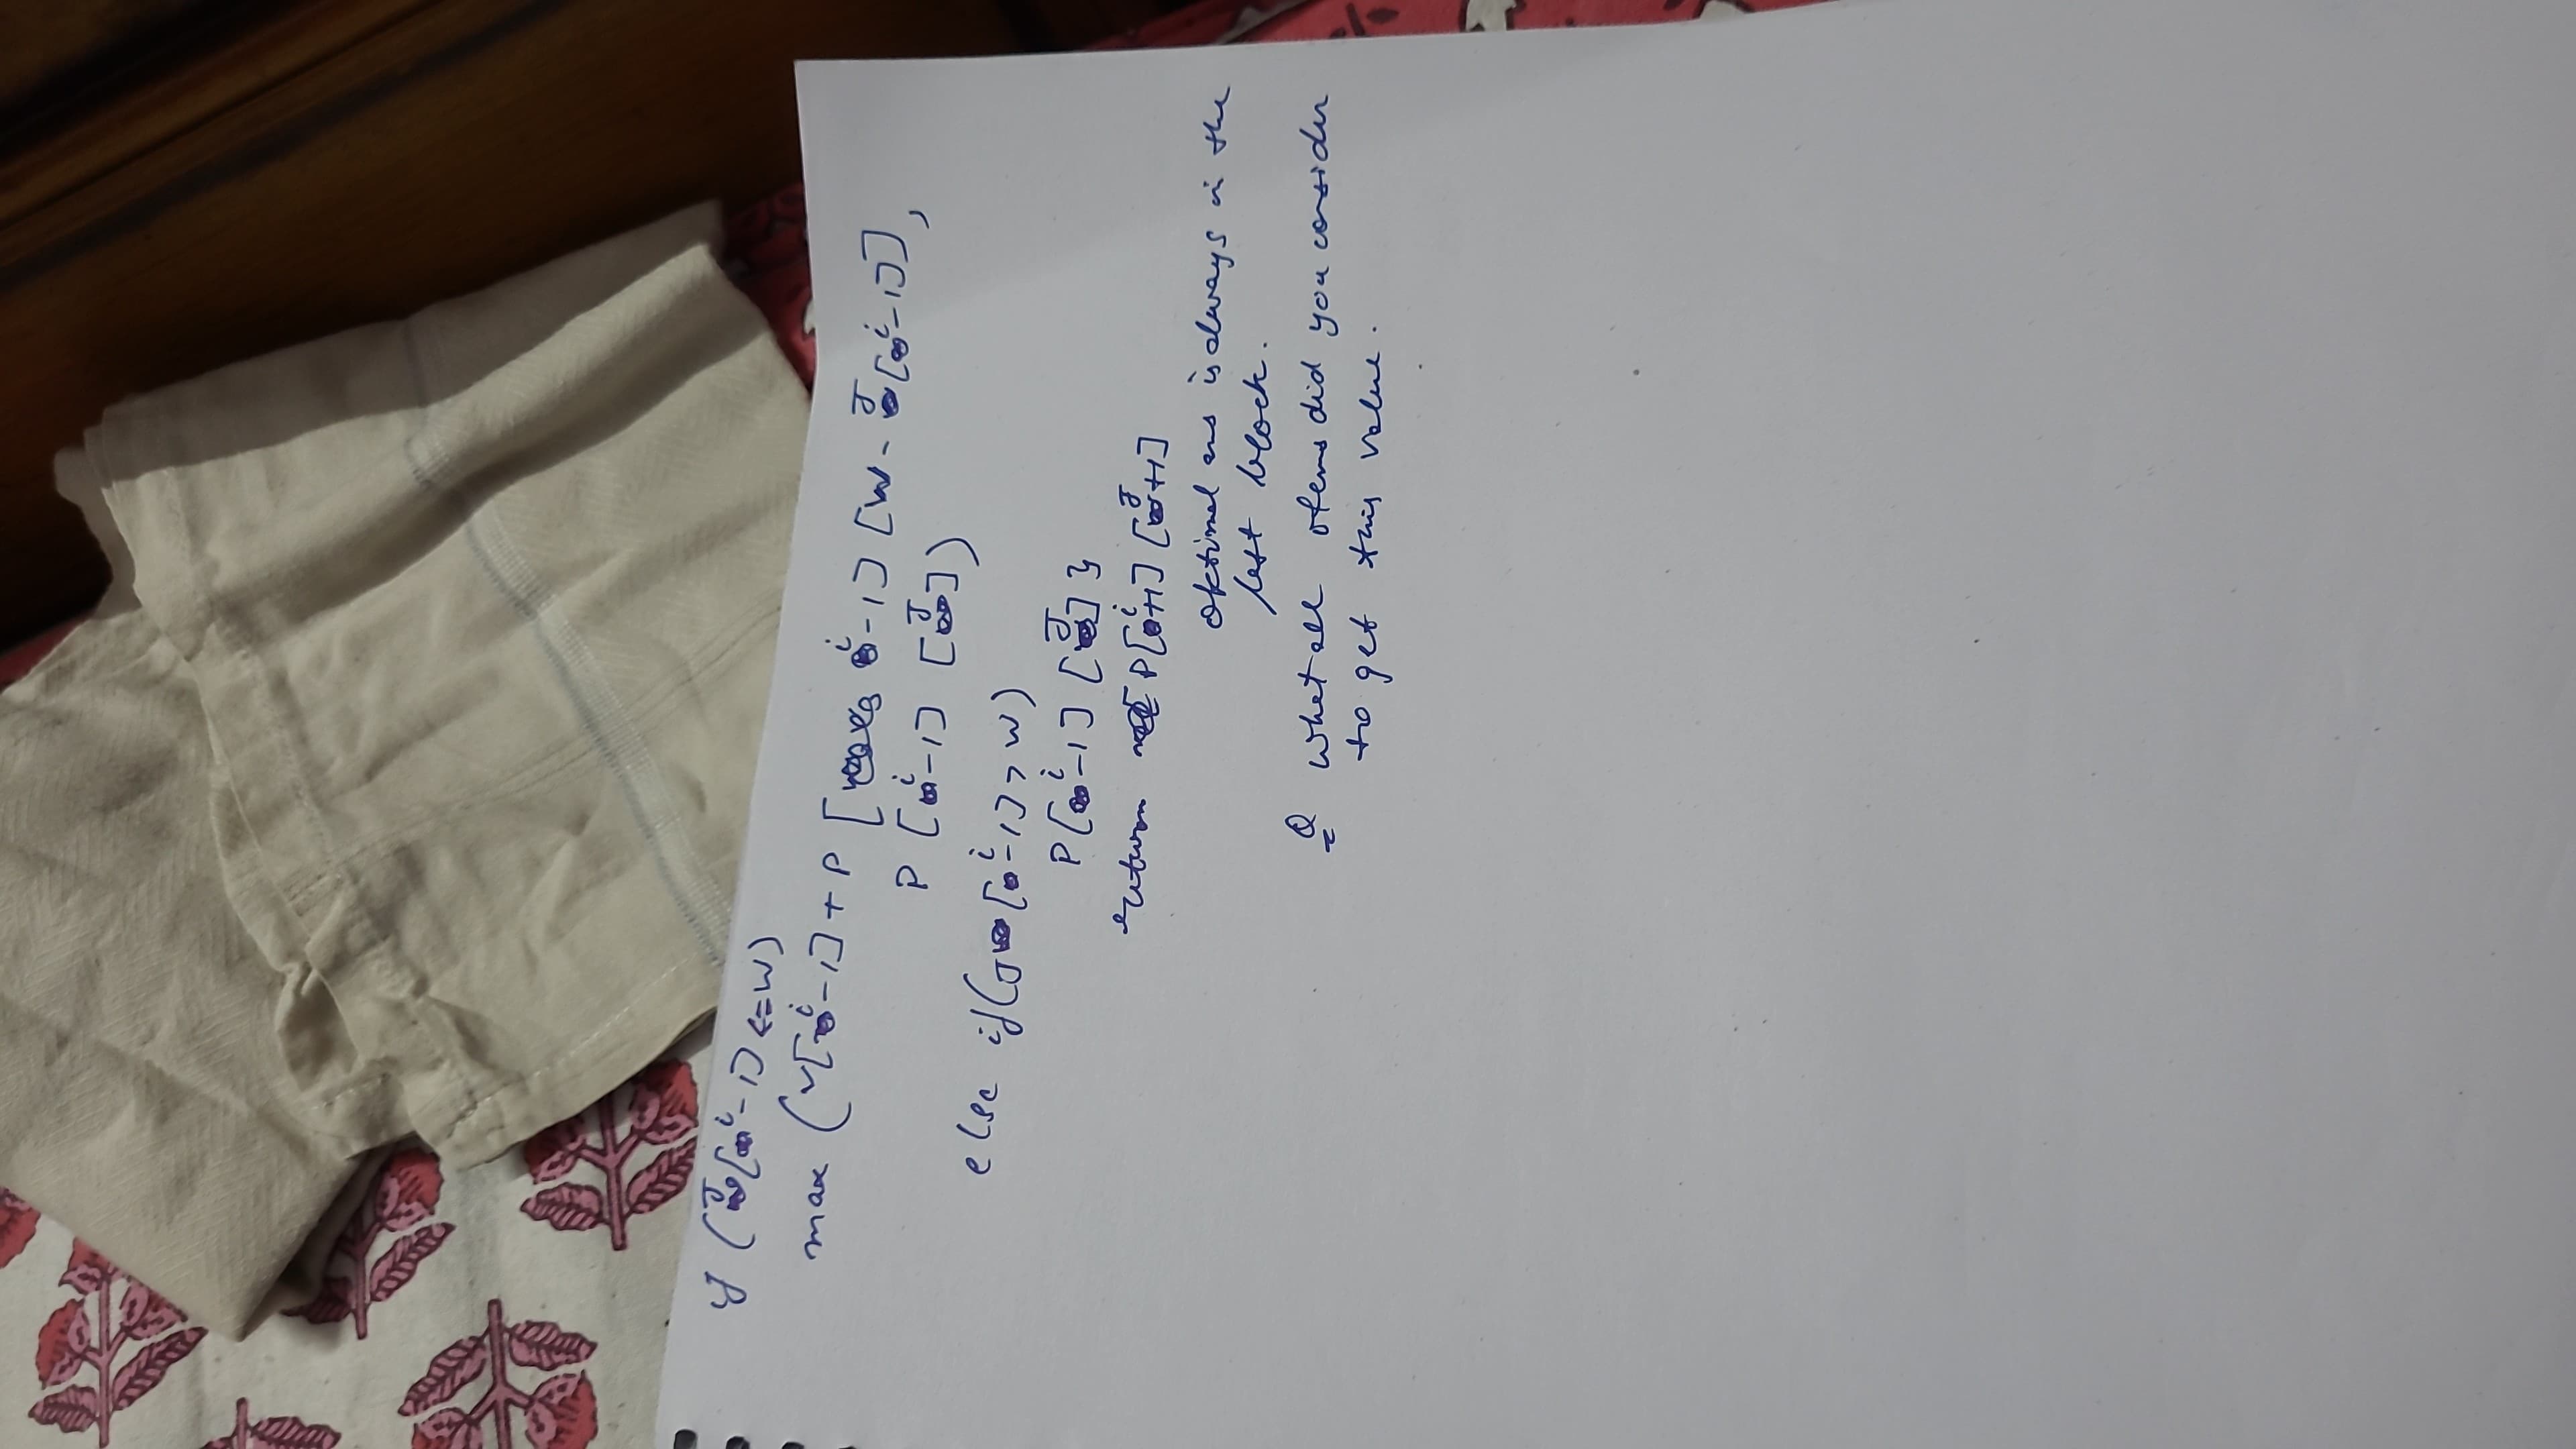 if (J[i-1] <= W)
max (v[i-1] + P [i-1] [W - J[i-1]],
P [i-1] [J])
else if (J[i-1] > W)
P[i-1] [J] }
return P[i+1] [J+1]
optimal ans is always in the
last block.
Q what all items did you consider
to get this value.